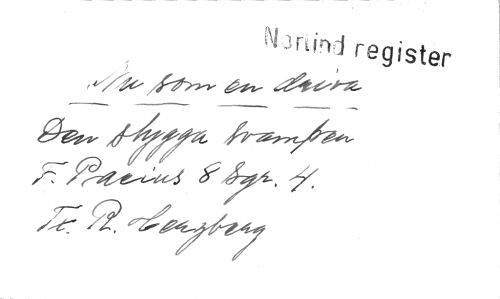 Norlind register
Nu som en driva
Den stygga svampen
F. Pacius 8 Sgr. 4.
Tr. R. Hertzberg